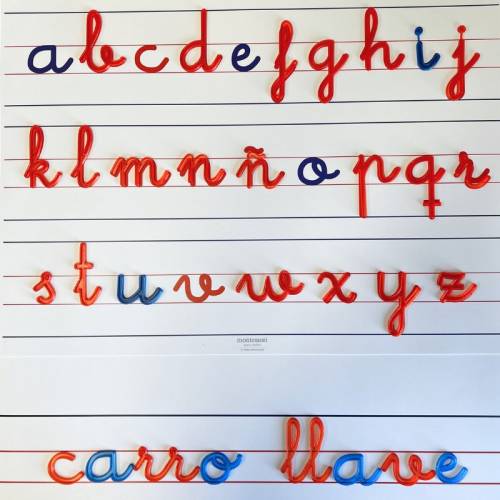 a b c d e f g h i j
k l m n ñ o p q r
s t u v w x y z
montessori
carro llave